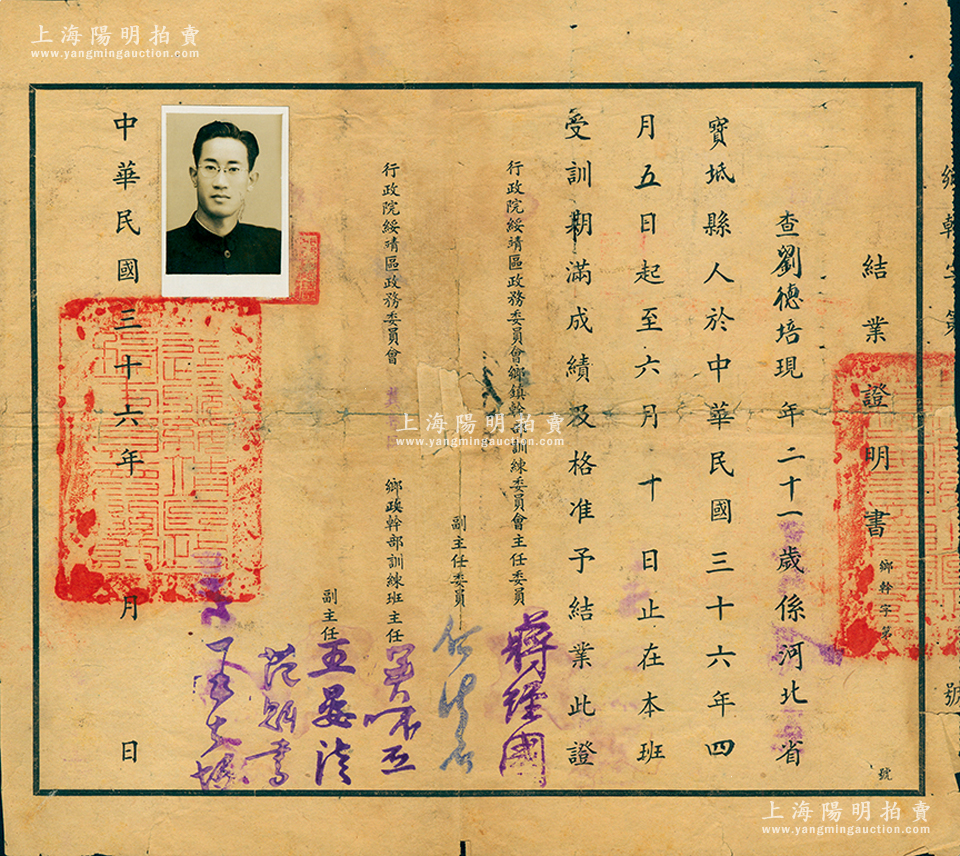 上海陽明拍賣
www.yangmingauction.com
結業證明書
鄉幹字第
號
查劉德培現年二十一歲係河北省
寶坻縣人於中華民國三十六年四
月五日起至六月十日止在本班
受訓期滿成績及格准予結業此證
行政院綏靖區政務委員會鄉鎮幹部訓練委員會主任委員 蔣經國
副主任委員
行政院綏靖區政務委員會
鄉政幹部訓練班主任
副主任
中華民國三十六年 月 日
上海陽明拍賣
www.yangmingauction.com
上海陽明拍賣
www.yangmingauction.com